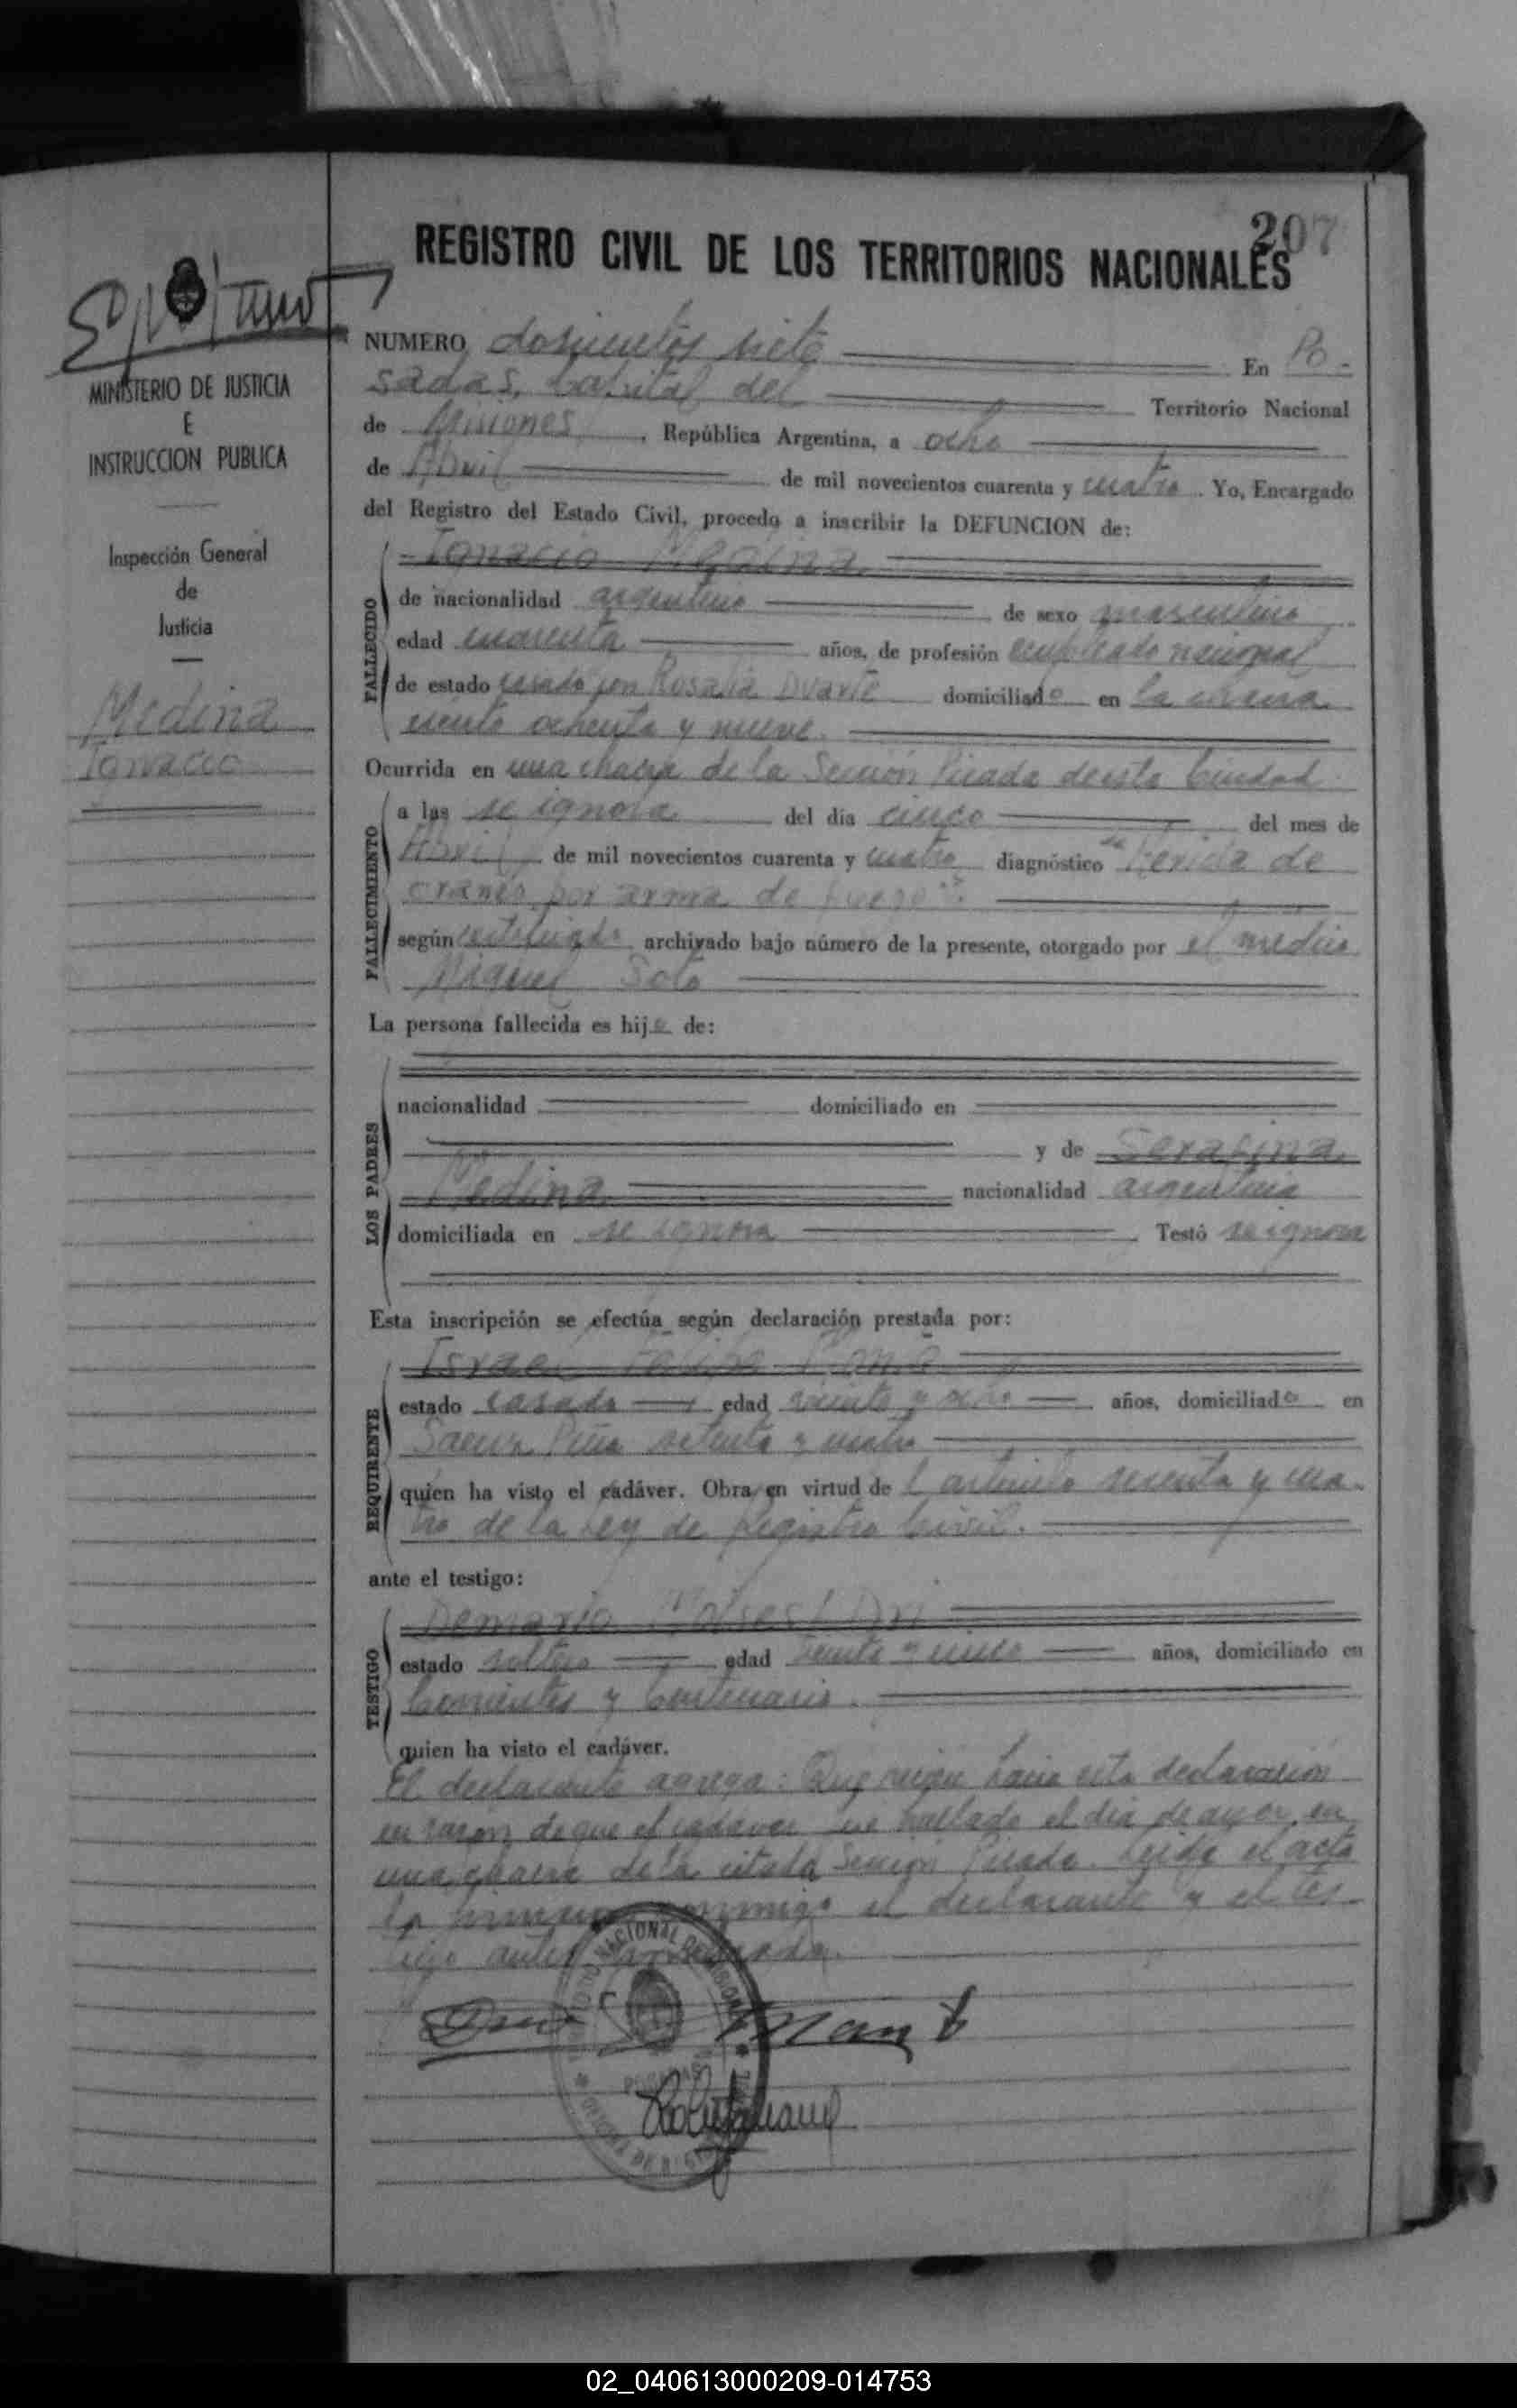 207
REGISTRO CIVIL DE LOS TERRITORIOS NACIONALES
MINISTERIO DE JUSTICIA
E
INSTRUCCION PUBLICA
Inspección General
de
Justicia
Medina
Ignacio
NUMERO doscientos siete En Po-
sadas, Capital del Territorio Nacional
de Misiones, República Argentina, a ocho
de Abril de mil novecientos cuarenta y cuatro. Yo, Encargado
del Registro del Estado Civil, procedo a inscribir la DEFUNCION de:
Ignacio Medina
FALLECIDO
de nacionalidad argentino de sexo masculino
edad cuarenta años, de profesión empleado nacional
de estado casado con Rosalia Duarte domiciliado en la chacra
ciento ochenta y nueve.
Ocurrida en una chacra de la Sección Picada de esta Ciudad
FALLECIMIENTO
a las se ignora del día cinco del mes de
Abril de mil novecientos cuarenta y cuatro diagnóstico "herida de
craneo por arma de fuego".
según certificado archivado bajo número de la presente, otorgado por el médico
Miguel Soto
La persona fallecida es hijo de:
LOS PADRES
nacionalidad domiciliado en
y de Serafina
Medina nacionalidad argentina
domiciliada en se ignora Testó se ignora
Esta inscripción se efectúa según declaración prestada por:
REQUIRENTE
Israel
estado casado edad años, domiciliado en
Saenz Peña setenta y cuatro
quien ha visto el cadáver. Obra en virtud del articulo sesenta y cua-
tro de la Ley de Registro Civil.
ante el testigo:
TESTIGO
Demario
estado soltero edad y cinco años, domiciliado en
Corrientes y Centenario.
quien ha visto el cadáver.
El declarante agrega: Que recien hacia esta declaración
en razon de que el cadaver fue hallado el dia de ayer en
una chacra de la citada Sección Picada. Leida el acta
la firman conmigo el declarante y el tes-
tigo antes
POSADAS
02_040613000209-014753